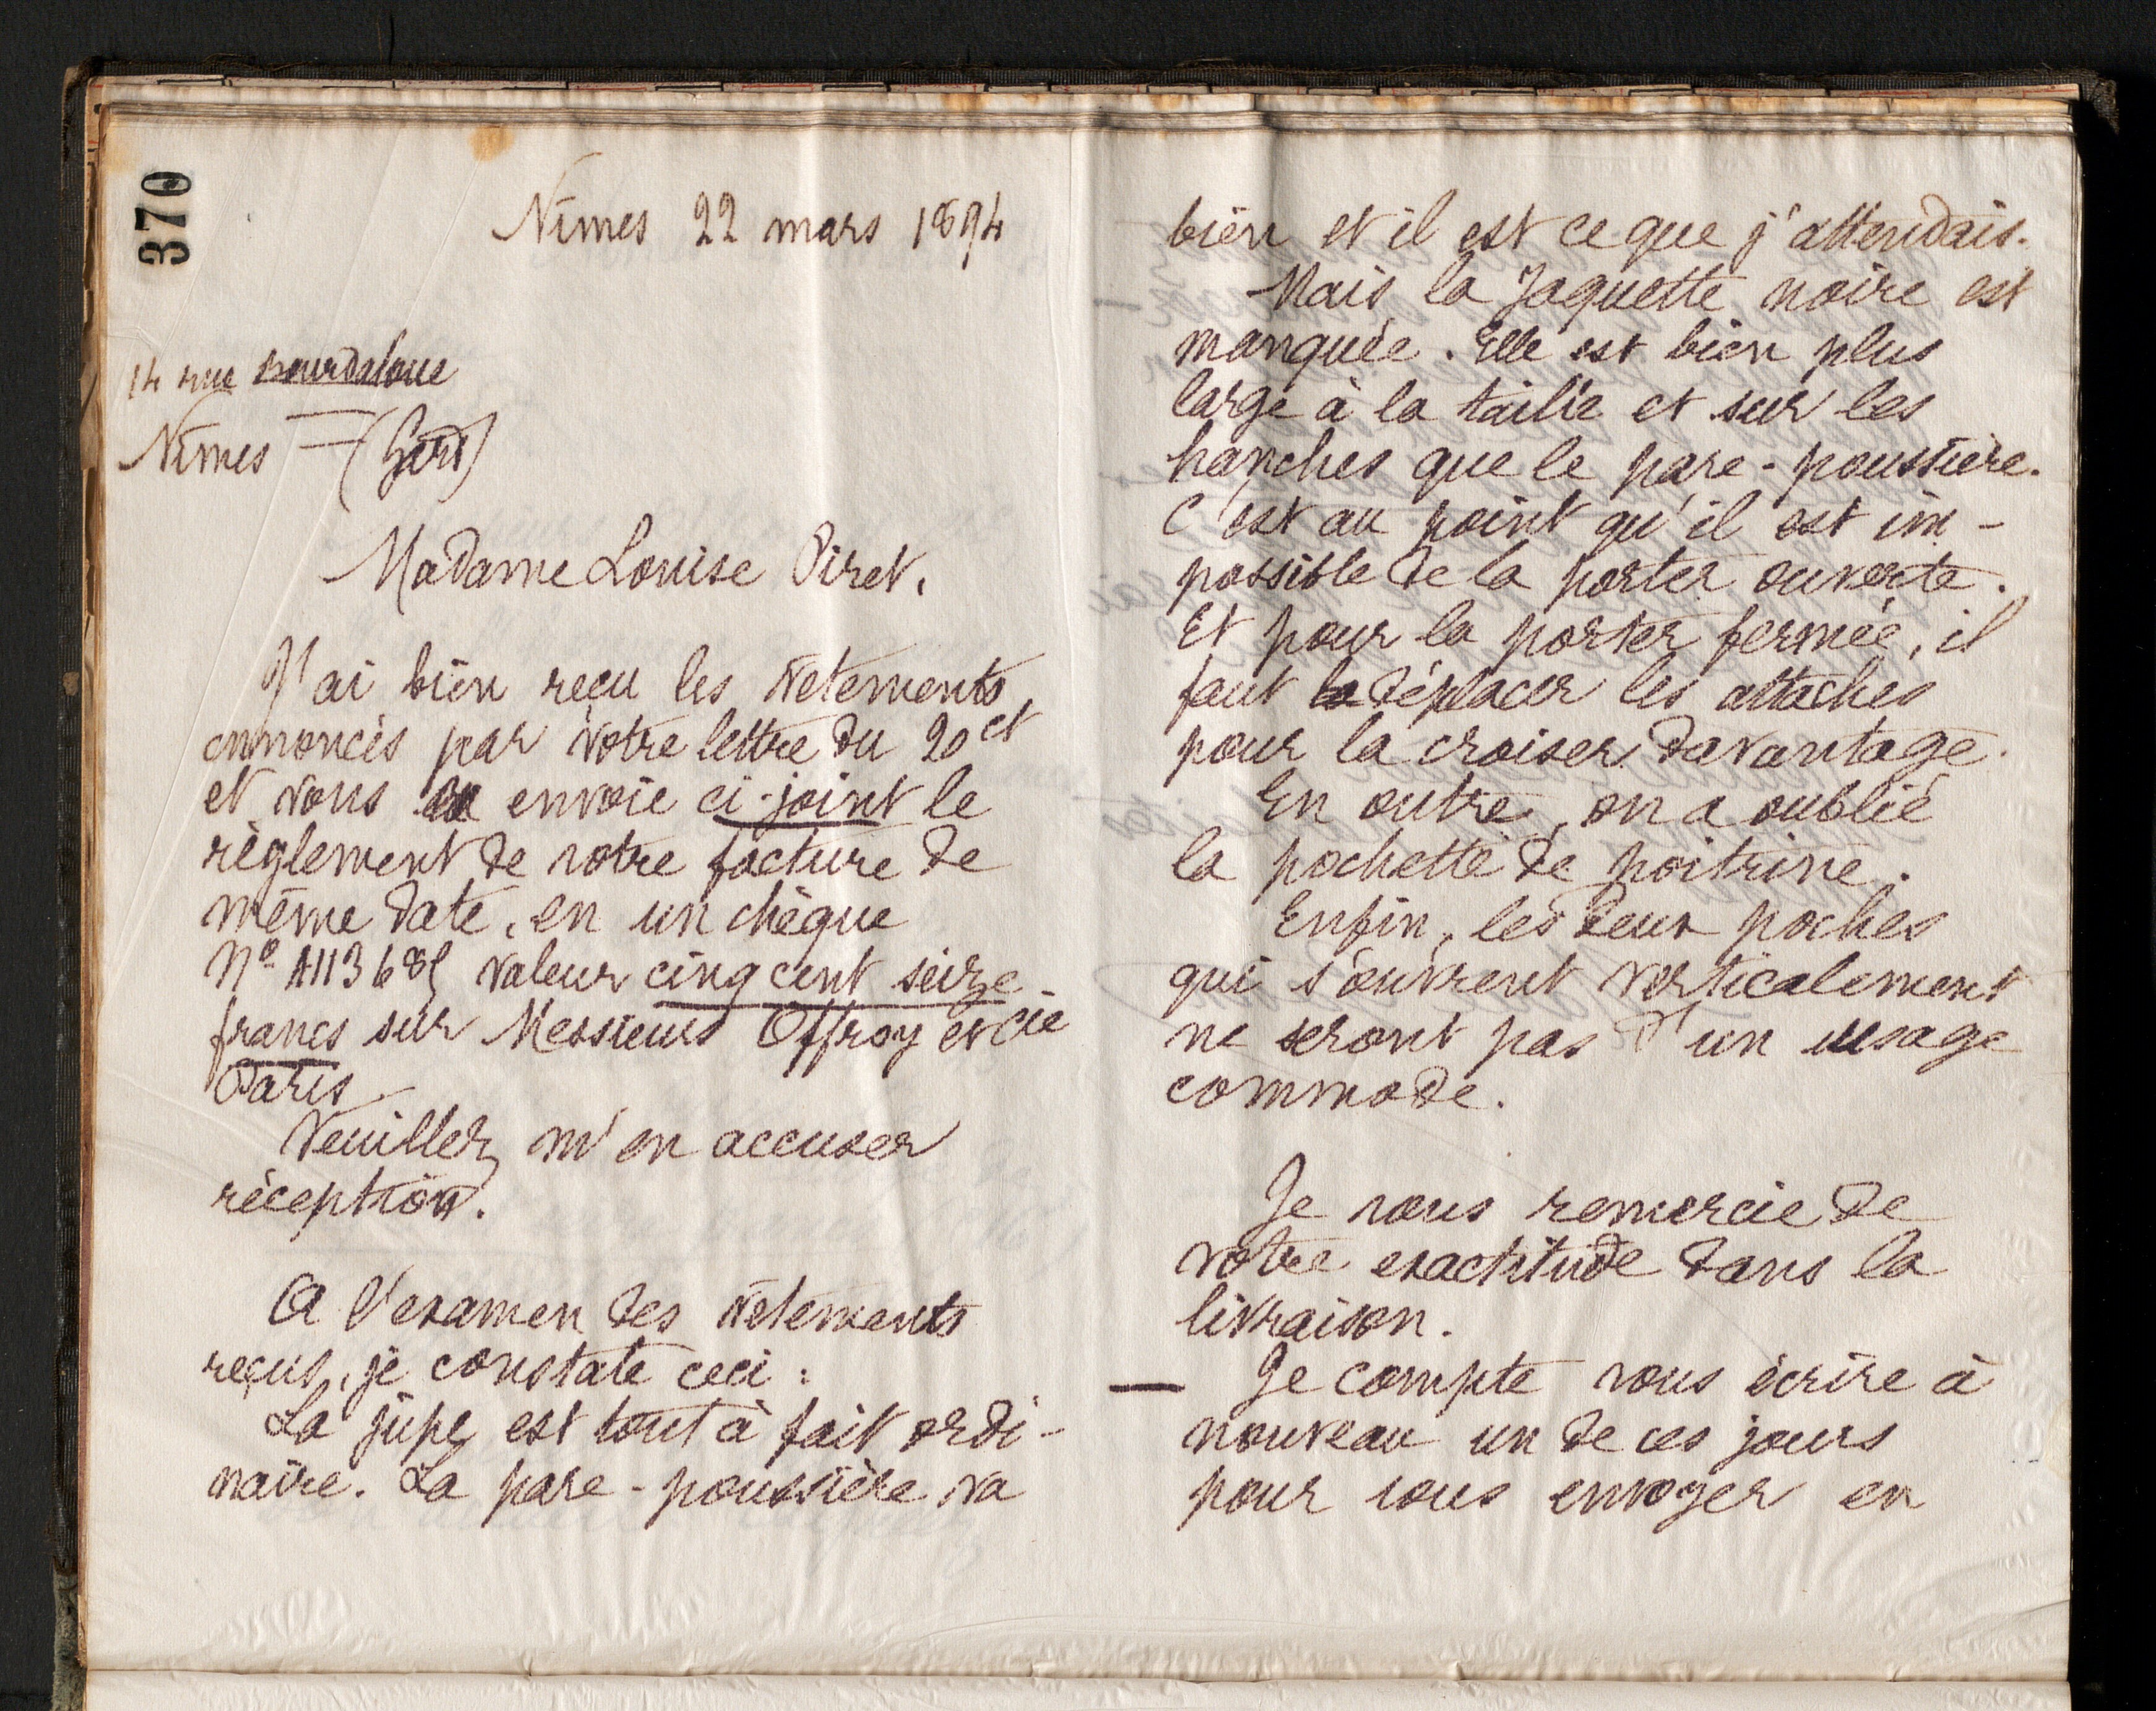 370
Nîmes 22 mars 1894
14 rue Bourdaloue
Nîmes — (Gard)
Madame Louise Piret.
J'ai bien reçu les vêtements
annoncés par votre lettre du 20 ct
et vous envoie ci-joint le
règlement de votre facture de
même date, en un chèque
No A113689 valeur cinq cent seize
francs sur Messieurs Offroy et Cie
Paris.
Veuillez m'en accuser
réception.
A l'examen des vêtements
reçus, je constate ceci :
La jupe est tout à fait ordi-
naire. La pare-poussière va
bien et il est ce que j'attendais.
Mais la Jaquette noire est
manquée. Elle est bien plus
large à la taille et sur les
hanches que le pare-poussière.
C'est au point qu'il est im-
possible de la porter ouverte.
Et pour la porter fermée, il
faut déplacer les attaches
pour la croiser davantage.
En outre, on a oublié
la pochette de poitrine.
Enfin, les deux poches
qui s'ouvrent verticalement
ne seront pas d'un usage
commode.
Je vous remercie de
votre exactitude dans la
livraison.
— Je compte vous écrire à
nouveau un de ces jours
pour vous envoyer en